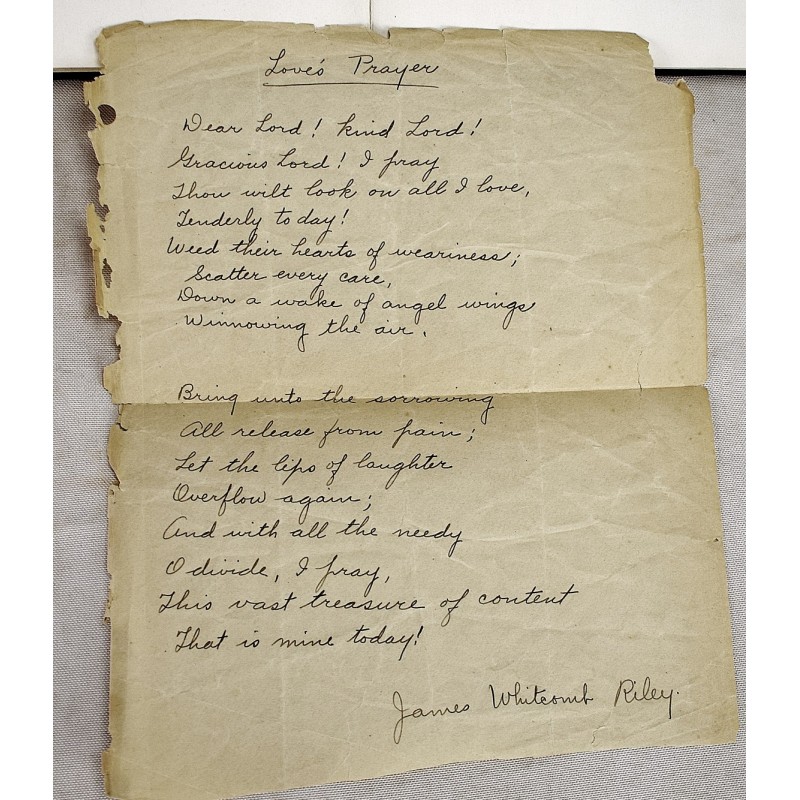 Love's Prayer
Dear Lord! kind Lord!
Gracious Lord! I pray
Thou wilt look on all I love,
Tenderly to day!
Weed their hearts of weariness;
Scatter every care,
Down a wake of angel wings
Winnowing the air.
Bring unto the sorrowing
All release from pain;
Let the lips of laughter
Overflow again;
And with all the needy
O divide, I pray,
This vast treasure of content
That is mine today!
James Whitcomb Riley.